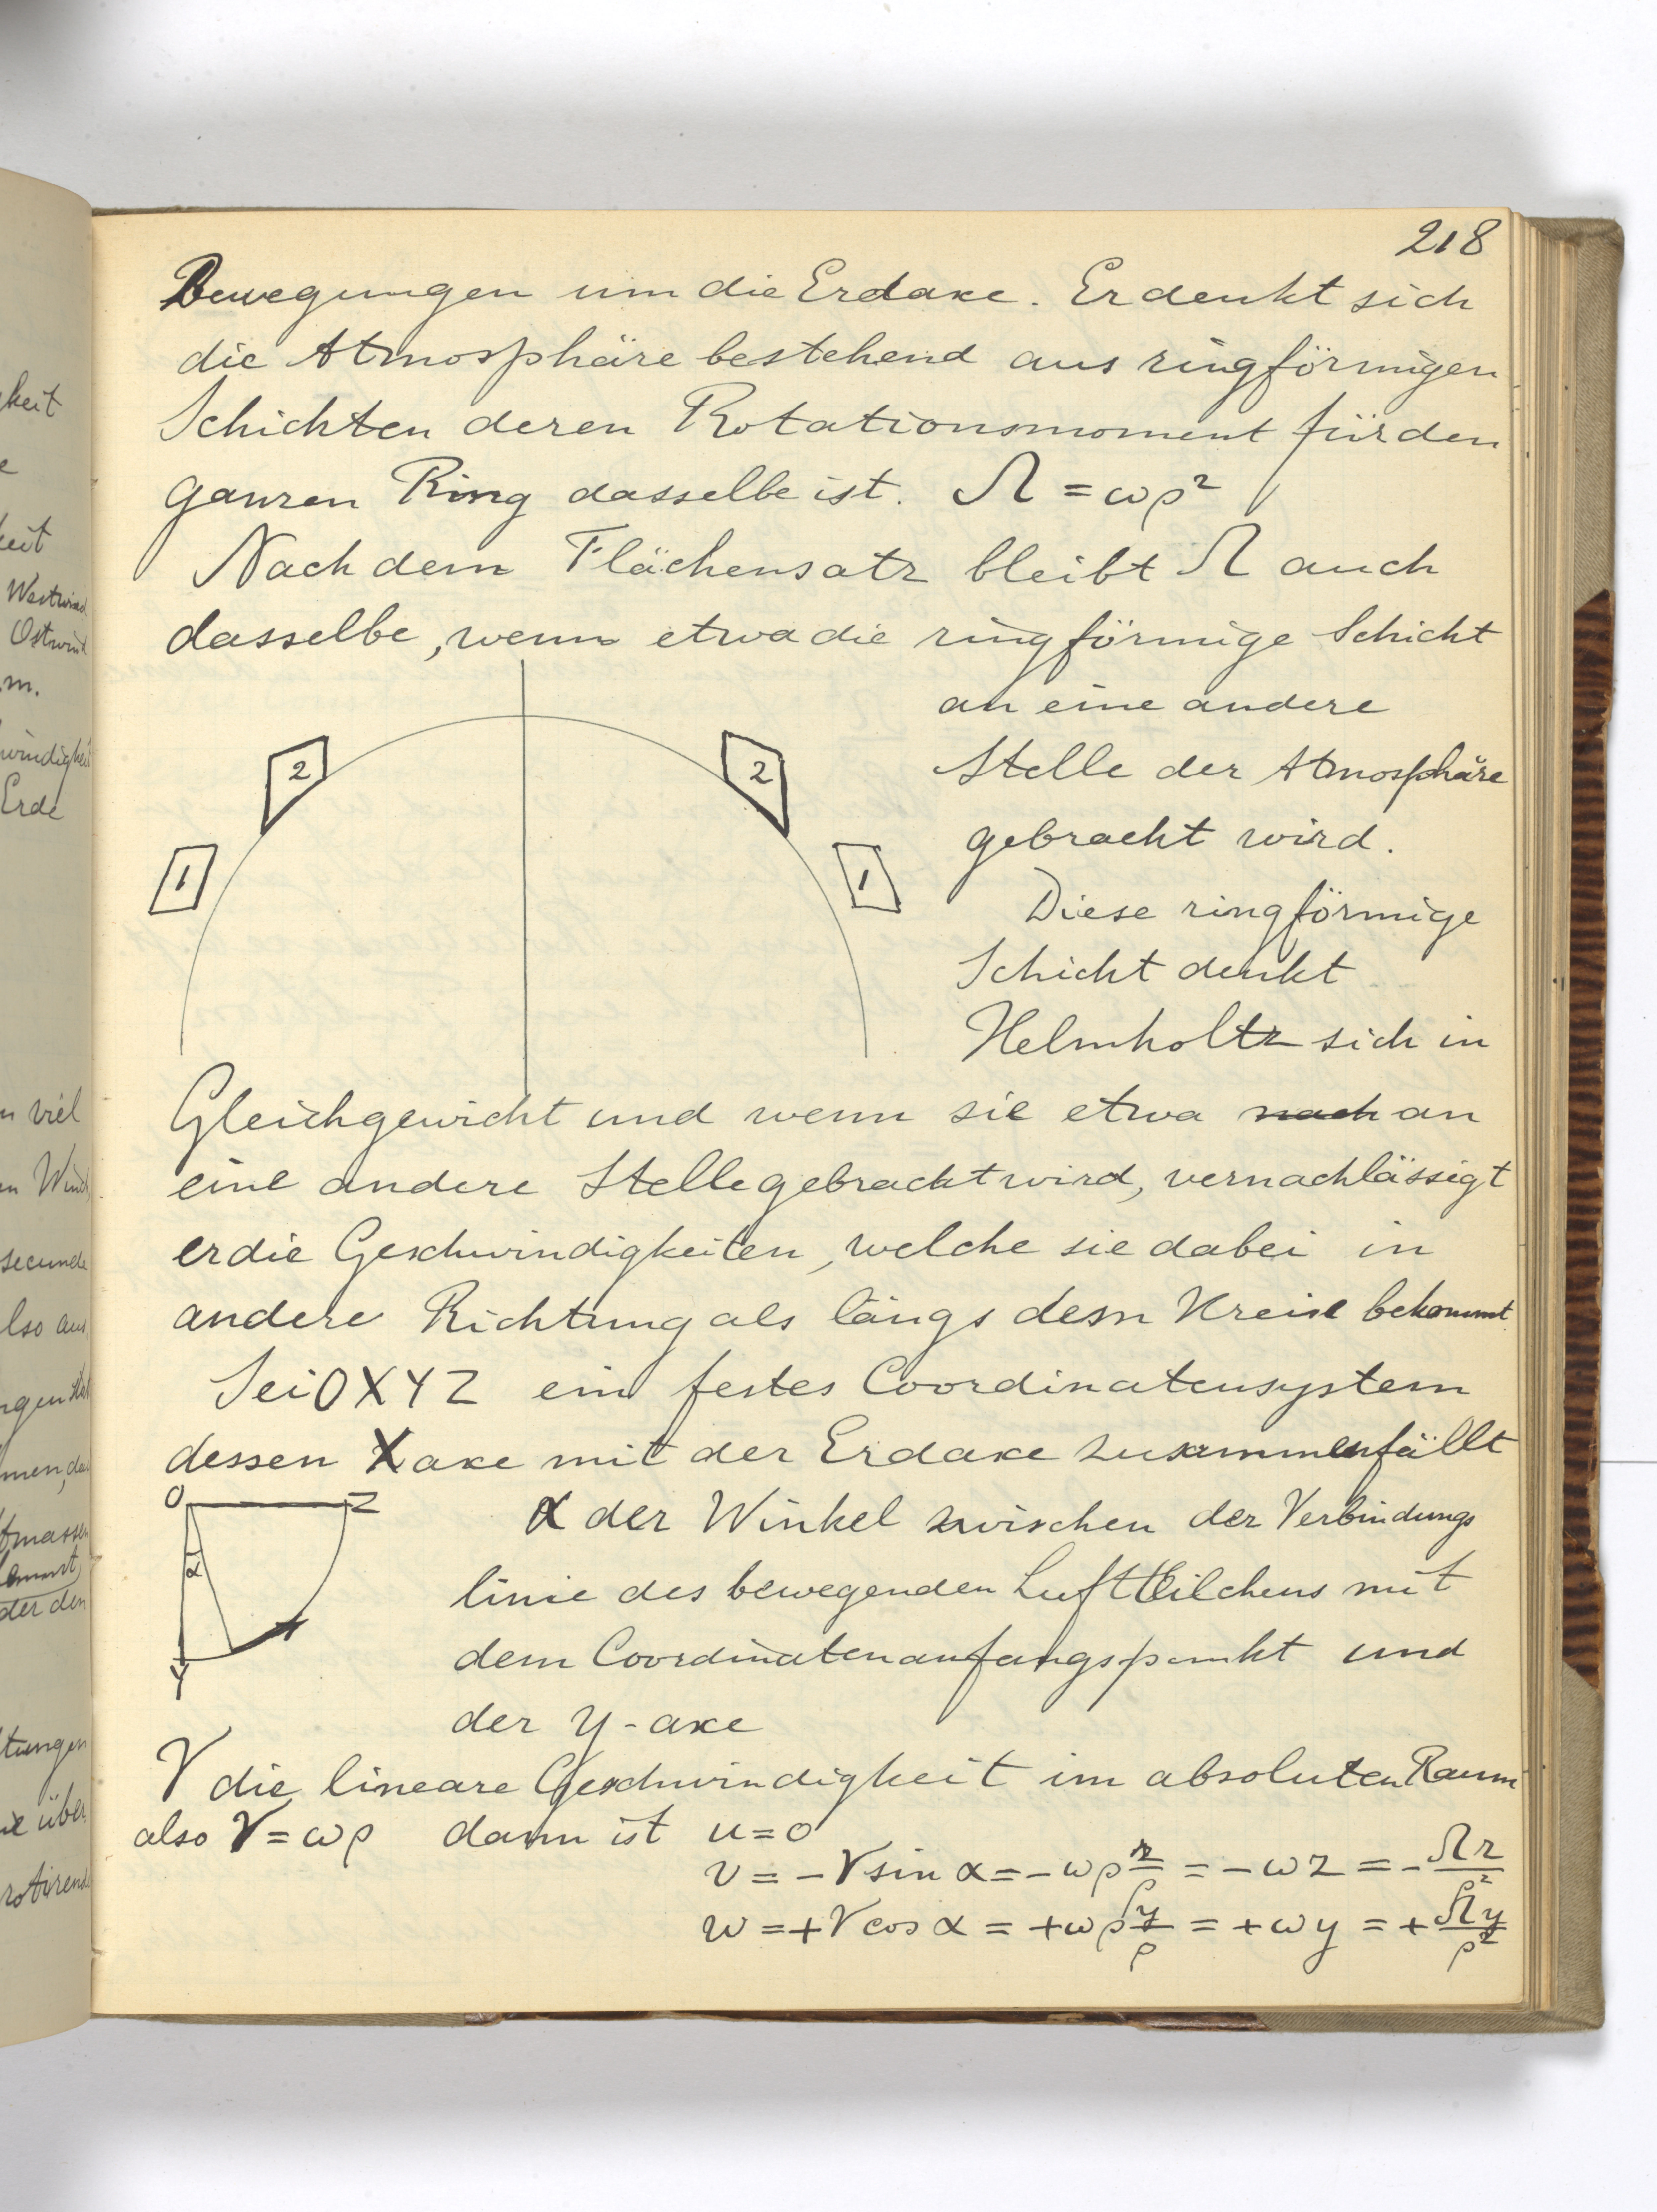 218
Bewegungen um die Erdaxe. Er denkt sich
die Atmosphäre bestehend aus ringförmigen
Schichten deren Rotationsmoment für den
ganzen Ring dasselbe ist. Ω = ωρ²
Nach dem Flächensatz bleibt Ω auch
dasselbe, wenn etwa die ringförmige Schicht
an eine andere
Stelle der Atmosphäre
gebracht wird.
Diese ringförmige
Schicht denkt
Helmholtz sich in
2 2
1 1
Gleichgewicht und wenn sie etwa nach an
eine andere Stelle gebracht wird, vernachlässigt
er die Geschwindigkeiten, welche sie dabei in
andere Richtung als längs dem Kreise bekommt
Sei OXYZ ein festes Coordinatensystem
dessen X axe mit der Erdaxe zusammenfällt
O Z
α
Y
α der Winkel zwischen der Verbindungs
linie des bewegenden Luftteilchens mit
dem Coordinatenanfangspunkt und
der y-axe
V die lineare Geschwindigkeit im absoluten Raum
also V = ωρ dann ist u = 0
v = - V sin α = - ωρ z/ρ = - ωz = - Ωz/ρ²
w = + V cos α = + ωρ y/ρ = + ωy = + Ωy/ρ²
keit
e
keit
Westwind
Ostwind
m.
windigkeit
Erde
n viel
n Wind
secunde
lso aus
ngen
men, da
tmassen
der den
tungen
ie über
rotirend